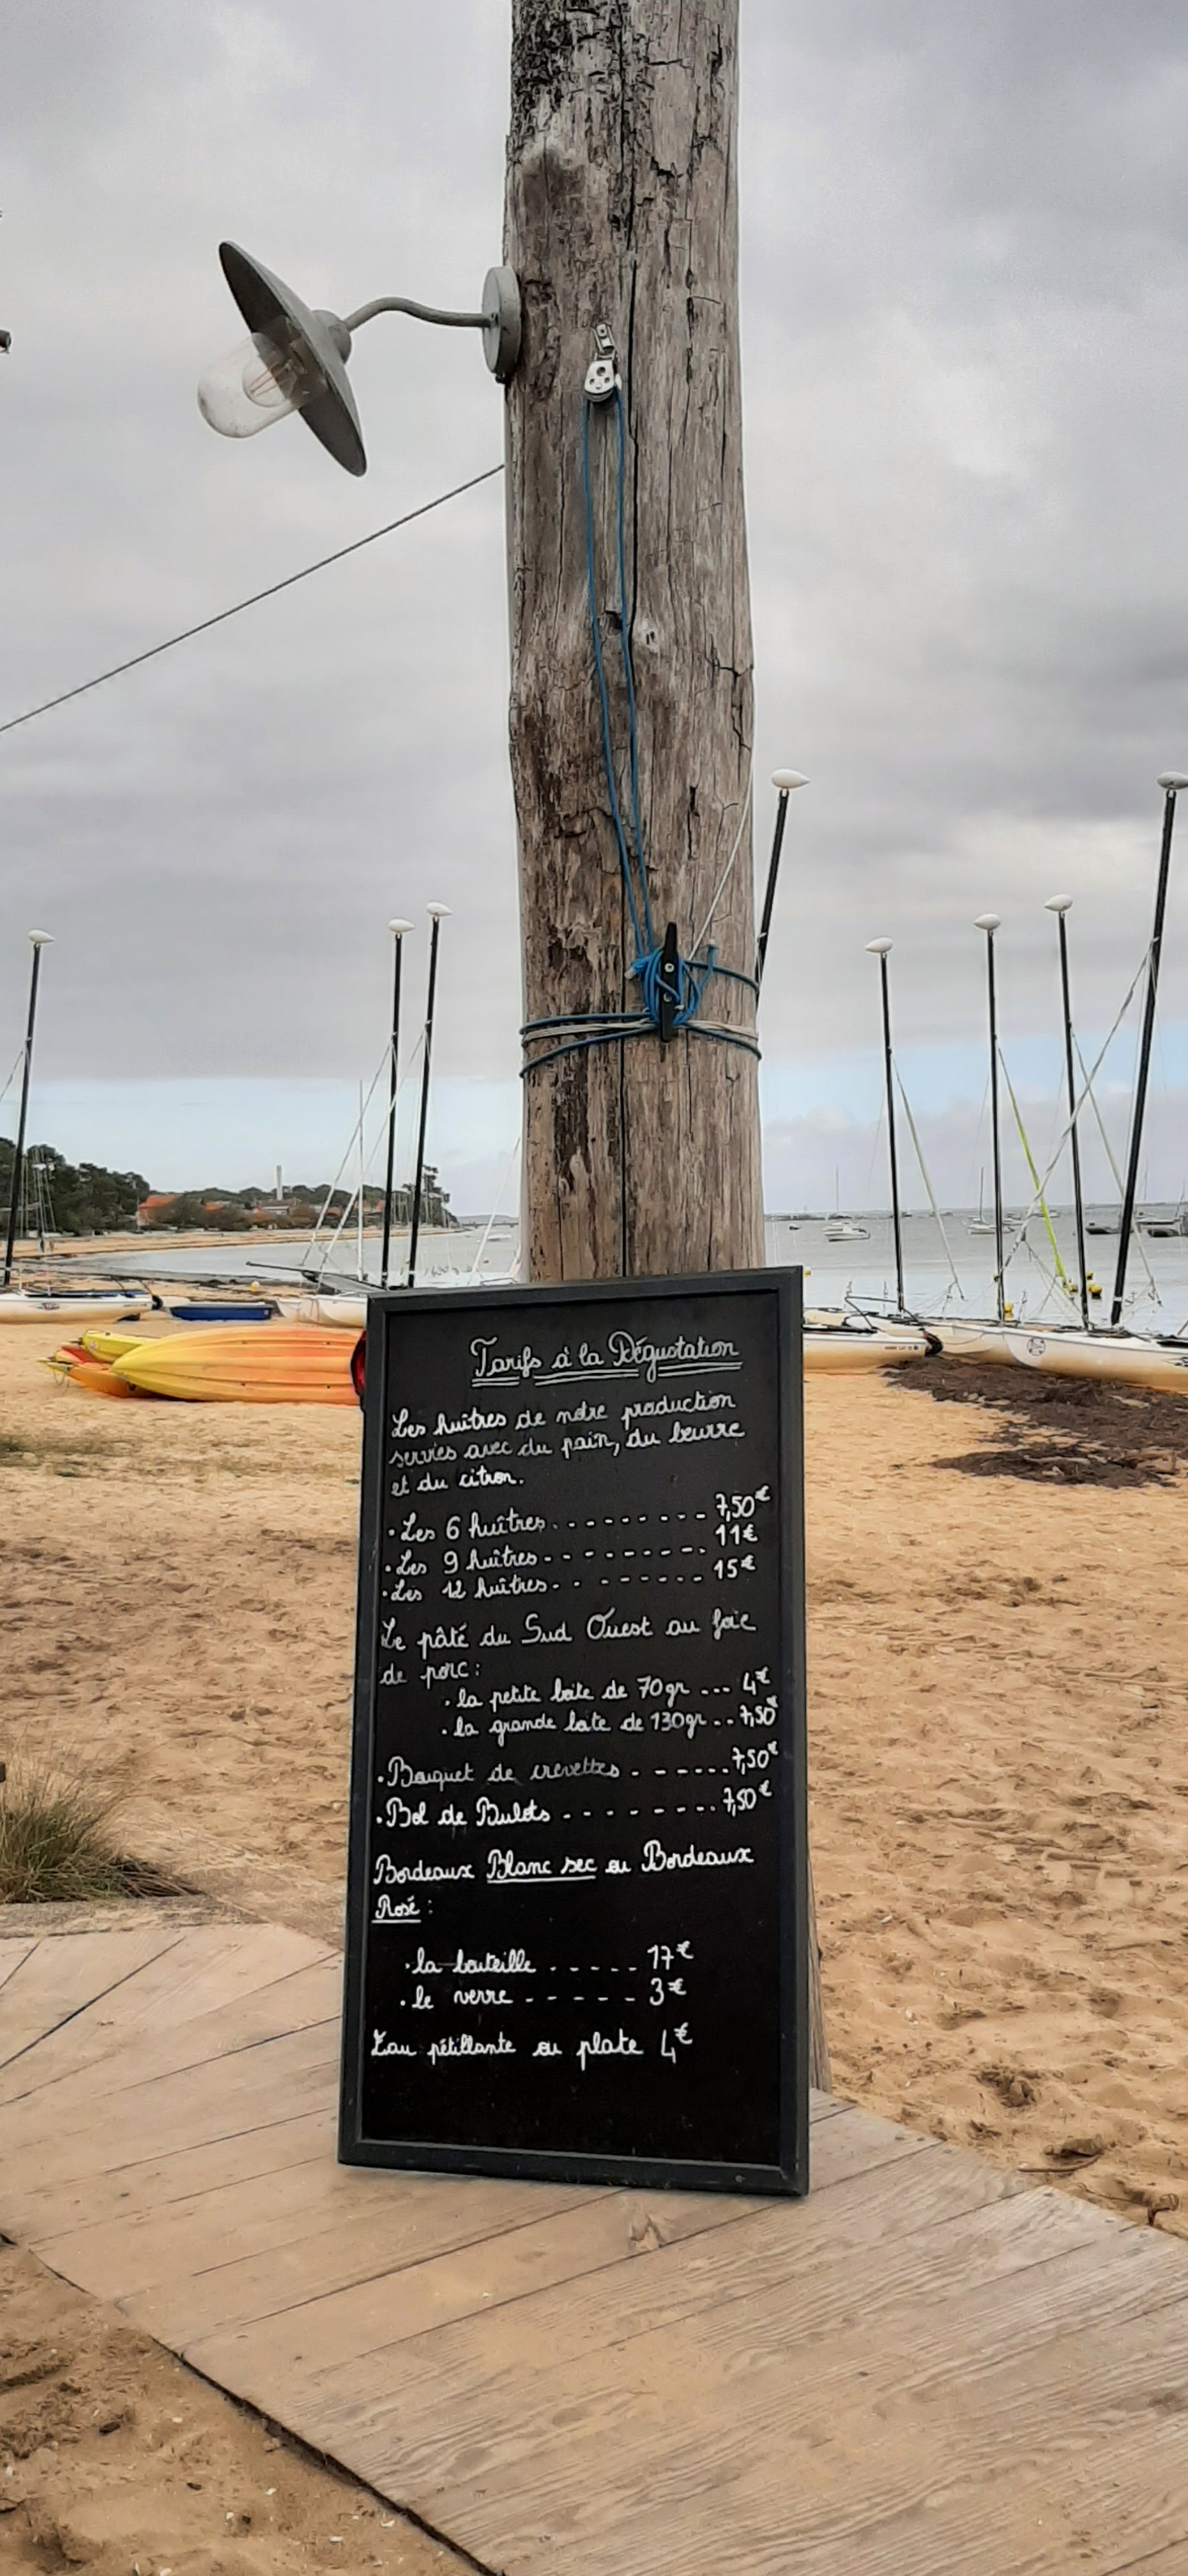 Tarifs à la Dégustation
Les huîtres de notre production
servies avec du pain, du beurre
et du citron.
• Les 6 huîtres......... 7,50€
• Les 9 huîtres-------- 11€
• Les 12 huîtres-------- 15€
Le pâté du Sud Ouest au foie
de porc :
• la petite boite de 70gr ... 4€
• la grande boite de 130gr .. 7,50€
• Bouquet de crevettes ------ 7,50€
• Bol de Bulots -------- 7,50€
Bordeaux Blanc sec ou Bordeaux
Rosé :
• la bouteille ----- 17€
• le verre ----- 3€
Eau pétillante ou plate 4€